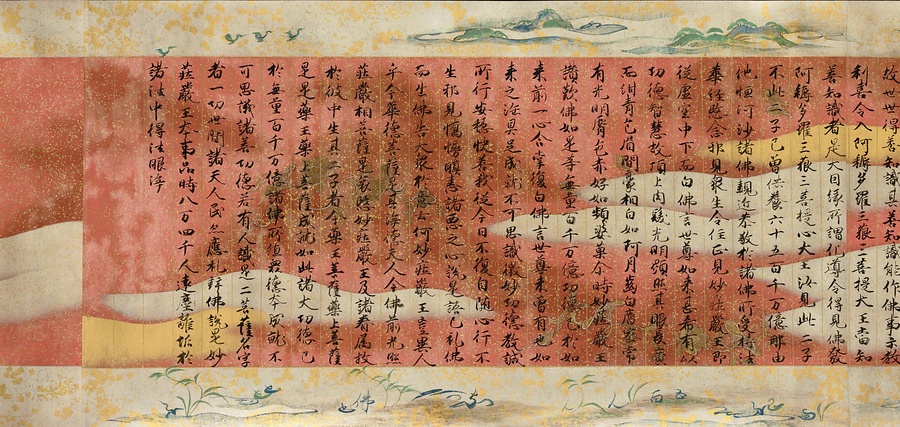 故世世得善知識其善知識能作佛事示教
利喜令入阿耨多羅三藐三菩提大王當知
善知識者是大因緣所謂化導令得見佛發
阿耨多羅三藐三菩提心大王汝見此二子
不此二子已曾供養六十五百千万億那由
他恒河沙諸佛親近恭敬於諸佛所受持法
華經愍念邪見衆生令住正見妙莊嚴王即
從虛空中下而白佛言世尊如來甚希有以
功德智慧故頂上肉髻光明顯照其眼長廣
而紺青色眉間豪相白如珂月齒白齊密常
有光明脣色赤好如頻婆菓尒時妙莊嚴王
讚歎佛如是等無量百千万億功德已於如
來前一心合掌復白佛言世尊未曾有也如
來之法具足成就不可思議微妙功德教誡
所行安穩快善我從今日不復自隨心行不
生邪見憍慢瞋恚諸惡之心說是語已礼佛
而出佛告大衆於意云何妙莊嚴王豈異人
乎今華德菩薩是其淨德夫人今佛前光照
莊嚴相菩薩是哀愍妙莊嚴王及諸眷属故
於彼中生其二子者今藥王菩薩藥上菩薩
是是藥王藥上菩薩成就如此諸大功德已
於無量百千万億諸佛所殖衆德本成就不
可思議諸善功德若有人識是二菩薩名字
者一切世間諸天人民亦應礼拜佛說是妙
莊嚴王本事品時八万四千人遠塵離垢於
諸法中得法眼淨
佛